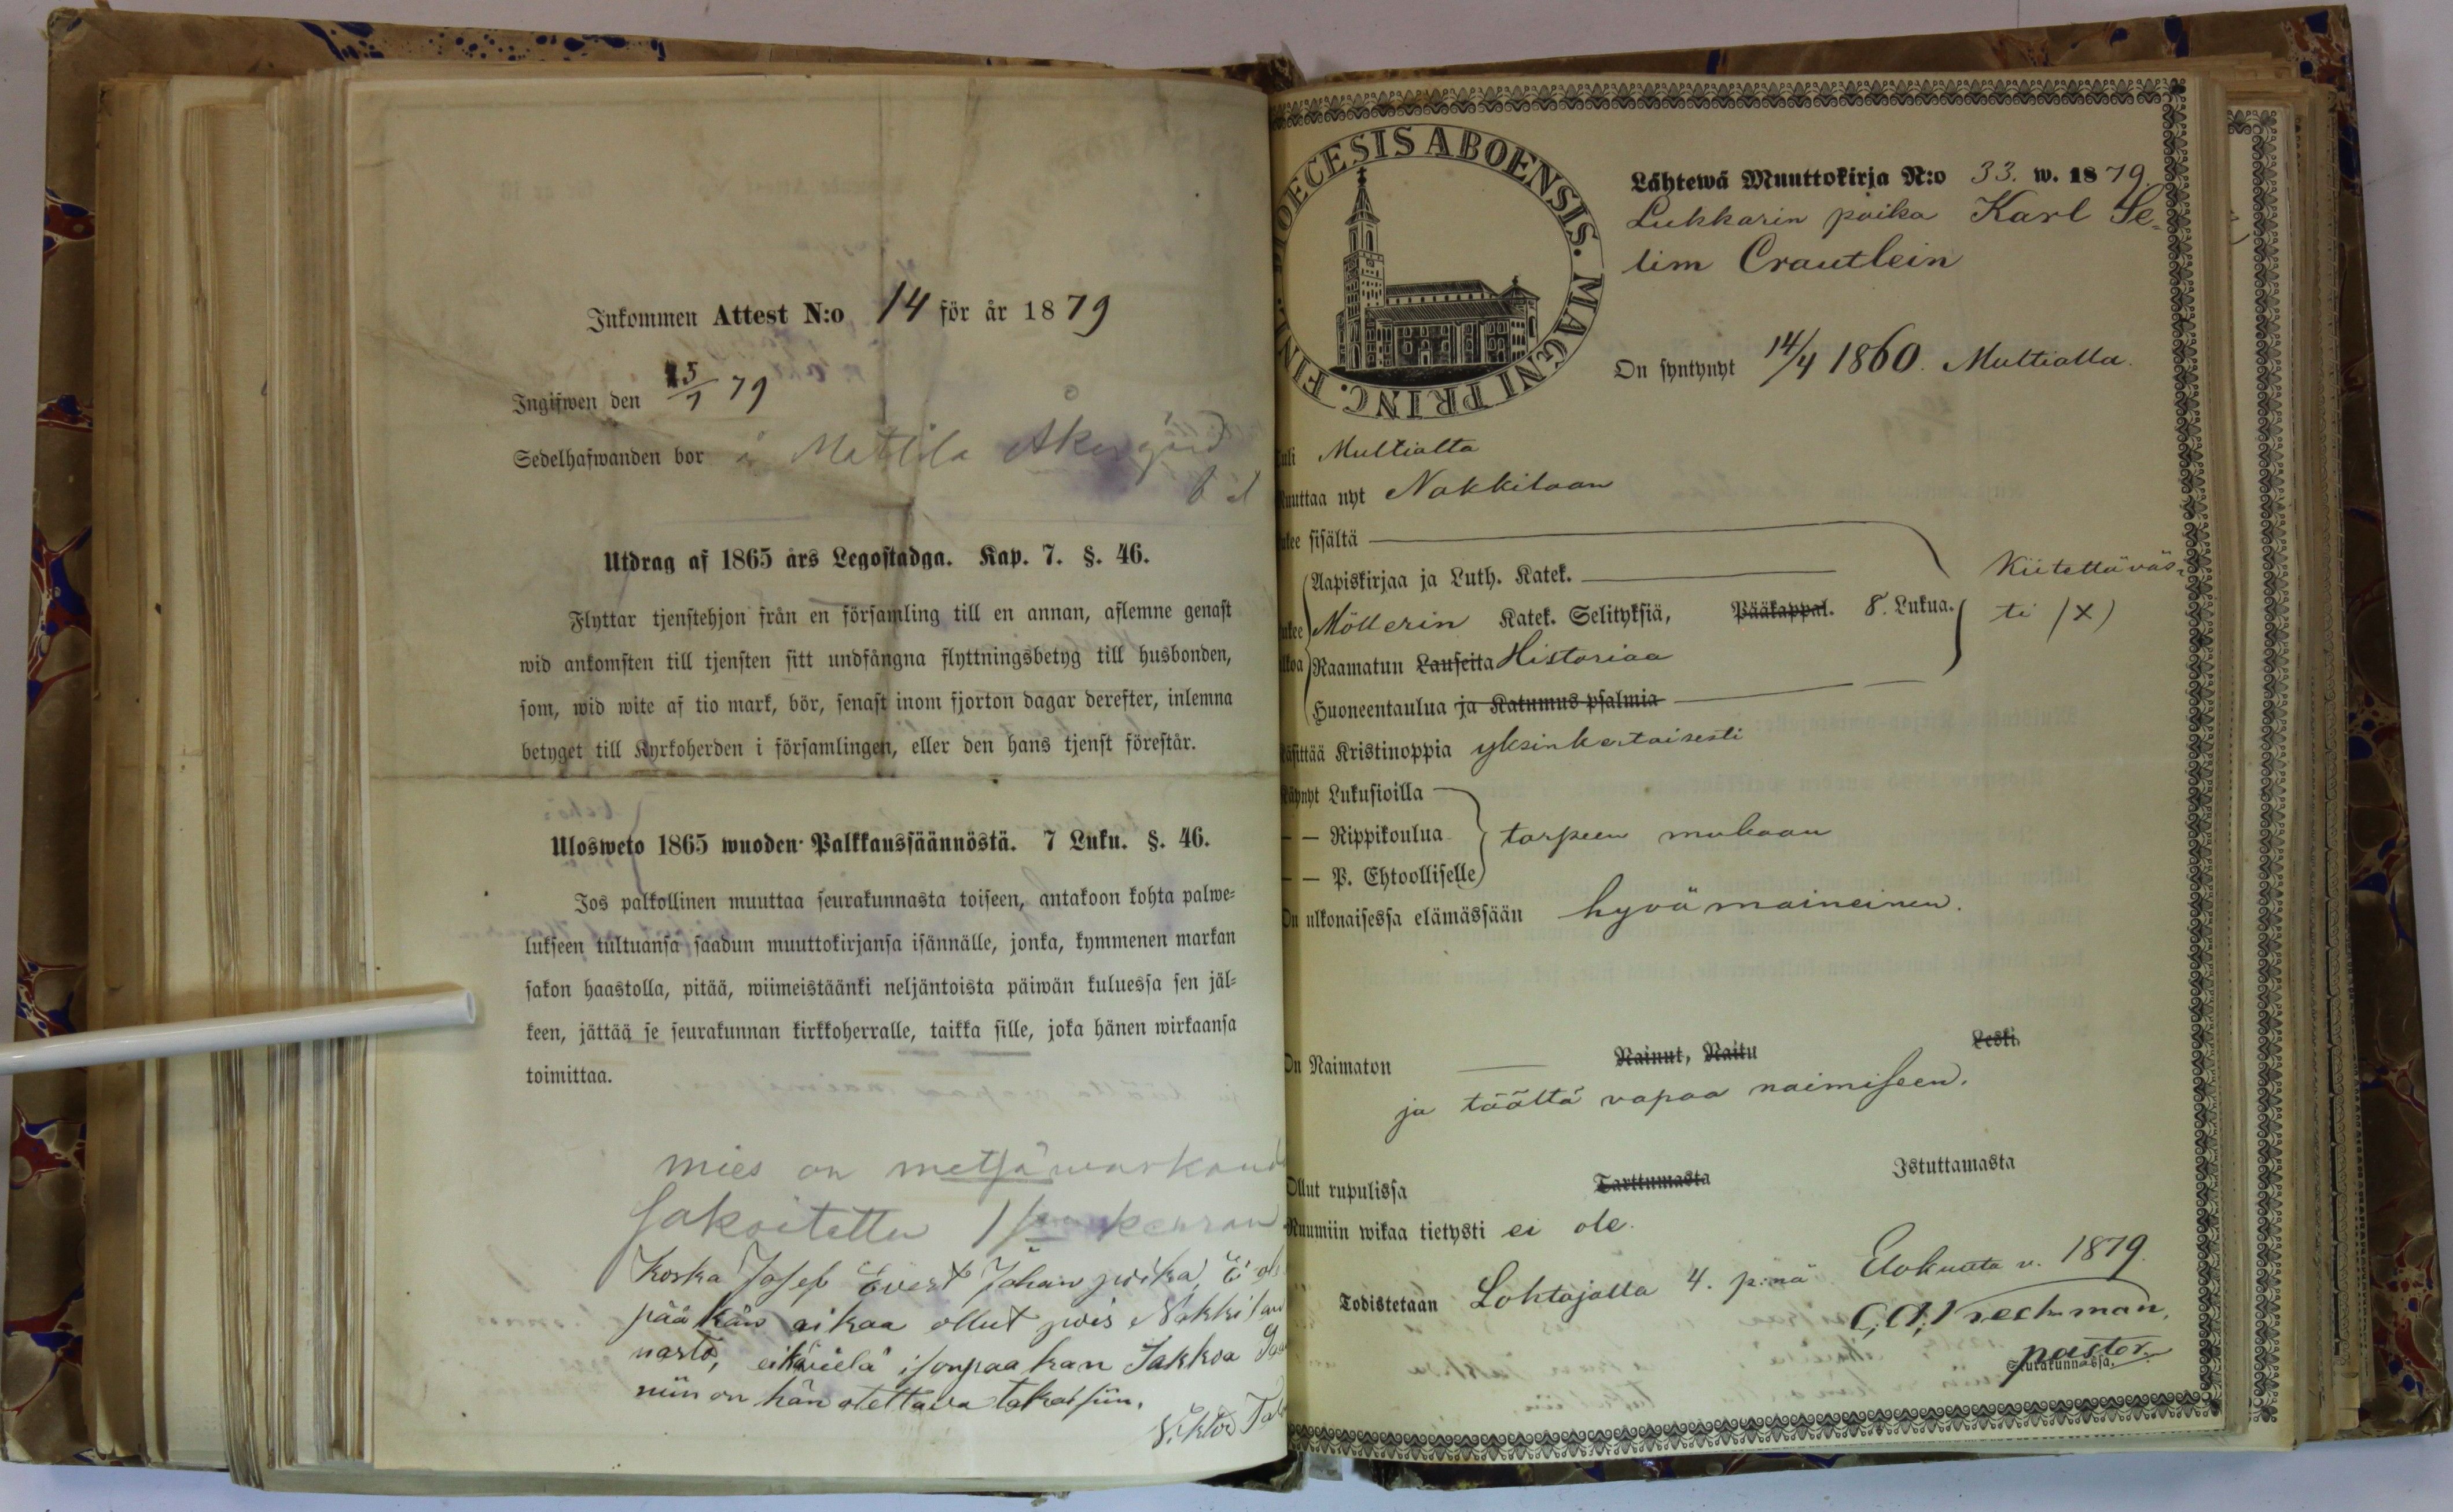 Inkommen Attest N:o 14 för år 1879
Ingifwen den 25/1 79
Sedelhafwanden bor å Mattila Åkergård
Utdrag af 1865 års Legostadga. Kap. 7. §. 46.
Flyttar tjenstehjon från en församling till en annan, aflemne genast
wid ankomsten till tjensten sitt undfångna flyttningsbetyg till husbonden,
som, wid wite af tio mark, bör, senast inom fjorton dagar derefter, inlemna
betyget till Kyrkoherden i församlingen, eller den hans tjenst förestår.
Ulosweto 1865 wuoden Palkkaussäännöstä. 7 Luku. §. 46.
Jos palkollinen muuttaa seurakunnasta toiseen, antakoon kohta palwe=
lukseen tultuansa saadun muuttokirjansa isännälle, jonka, kymmenen markan
sakon haastolla, pitää, wiimeistäänki neljäntoista päiwän kuluessa sen jäl=
keen, jättää se seurakunnan kirkkoherralle, taikka sille, joka hänen wirkaansa
toimittaa.
mies on metsäwarkaud
sakoitettu 1
Koska Josef Evert Johan poika, ei ole
pääkän aikaa ollut pois Nakkilan
eikä vielä isonpaakan Jakkoa
niin on hän otettava takaisiin.
Viktor
DIOECESIS ABOENSIS. MAGNI PRINC. FINL.
Lähtewä Muuttokirja N:o 33. w. 1879.
Lukkarin poika Karl Se=
lim Crautlein
On syntynyt 14/4 1860. Multialla.
Tuli Multialta
Muuttaa nyt Nakkilaan
Lukee sisältä
Aapiskirjaa ja Luth. Katek.
Kiitettäväs=
Möllerin Katek. Selityksiä, Pääkappal. 8. Lukua.
ti (X)
Raamatun Lauseita Historiaa
Huoneentaulua ja Katumus psalmia
Käsittää Kristinoppia yksinkertaisesti
Käynyt Lukusioilla
— — Rippikoulua tarpeen mukaan
— — P. Ehtoolliselle
On ulkonaisessa elämässään hyvämaineinen.
On Naimaton Nainut, Naitu Leski
ja täältä vapaa naimiseen.
Ollut rupulissa Tarttumasta Istuttamasta
Ruumiin wikaa tietysti ei ole.
Todistetaan Lohtajalla 4. p:nä Elokuuta v. 1879.
pastor.
Seurakunnassa.